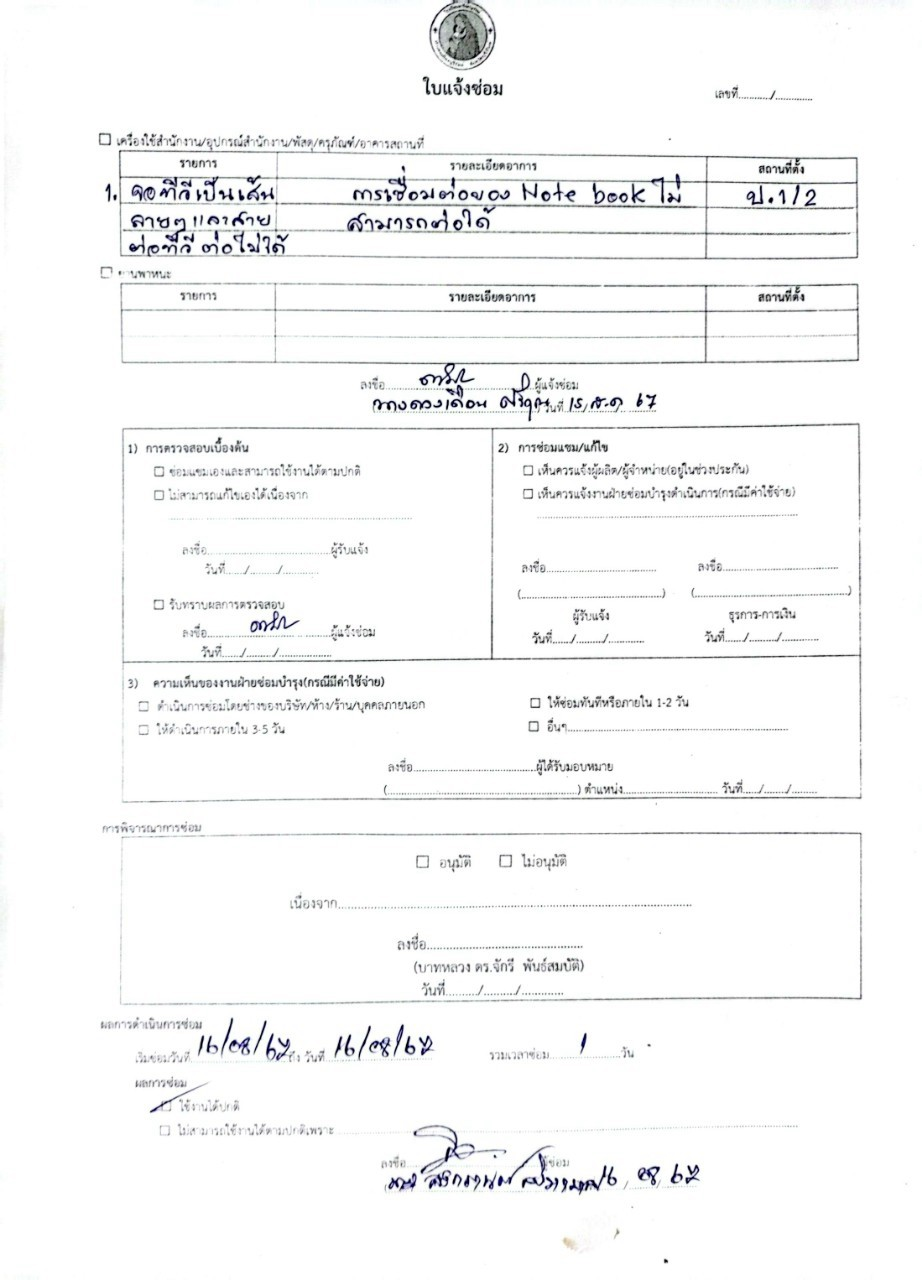 ใบแจ้งซ่อม
เลขที่.........../.............
☐ เครื่องใช้สำนักงาน/อุปกรณ์สำนักงาน/พัสดุ/ครุภัณฑ์/อาคารสถานที่
รายการ รายละเอียดอาการ สถานที่ตั้ง
1. จอทีวีเป็นเส้น การเชื่อมต่อของ Note book ไม่ ป.1/2
ลายๆ และสาย สามารถต่อได้
ต่อทีวี ต่อไม่ได้
☐ ยานพาหนะ
รายการ รายละเอียดอาการ สถานที่ตั้ง
ลงชื่อ ผู้แจ้งซ่อม
วันที่ 15 ส.ค 67
1) การตรวจสอบเบื้องต้น
☐ ซ่อมแซมเองและสามารถใช้งานได้ตามปกติ
☐ ไม่สามารถแก้ไขเองได้เนื่องจาก
ลงชื่อ.................................ผู้รับแจ้ง
วันที่....../........./............
☐ รับทราบผลการตรวจสอบ
ลงชื่อ.................................ผู้แจ้งซ่อม
วันที่....../........./.................
2) การซ่อมแซม/แก้ไข
☐ เห็นควรแจ้งผู้ผลิต/ผู้จำหน่าย(อยู่ในช่วงประกัน)
☐ เห็นควรแจ้งงานฝ่ายซ่อมบำรุงดำเนินการ(กรณีมีค่าใช้จ่าย)
ลงชื่อ.............................. ลงชื่อ..............................
(........................................) (........................................)
ผู้รับแจ้ง ธุรการ-การเงิน
วันที่....../......../............ วันที่....../......../............
3) ความเห็นของงานฝ่ายซ่อมบำรุง(กรณีมีค่าใช้จ่าย)
☐ ดำเนินการซ่อมโดยช่างของบริษัท/ห้าง/ร้าน/บุคคลภายนอก ☐ ให้ซ่อมทันทีหรือภายใน 1-2 วัน
☐ ให้ดำเนินการภายใน 3-5 วัน ☐ อื่นๆ..............................................
ลงชื่อ..................................ผู้ได้รับมอบหมาย
(....................................................) ตำแหน่ง.......................... วันที่...../......./........
การพิจารณาการซ่อม
☐ อนุมัติ ☐ ไม่อนุมัติ
เนื่องจาก....................................................................................
ลงชื่อ..........................................
(บาทหลวง ดร.จักรี พันธ์สมบัติ)
วันที่........./........./............
ผลการดำเนินการซ่อม
เริ่มซ่อมวันที่ 16/08/67 ถึง วันที่ 16/08/67 รวมเวลาซ่อม 1 วัน
ผลการซ่อม
☐ ใช้งานได้ปกติ
☐ ไม่สามารถใช้งานได้ตามปกติเพราะ
ลงชื่อ ผู้ซ่อม
16, 08, 67